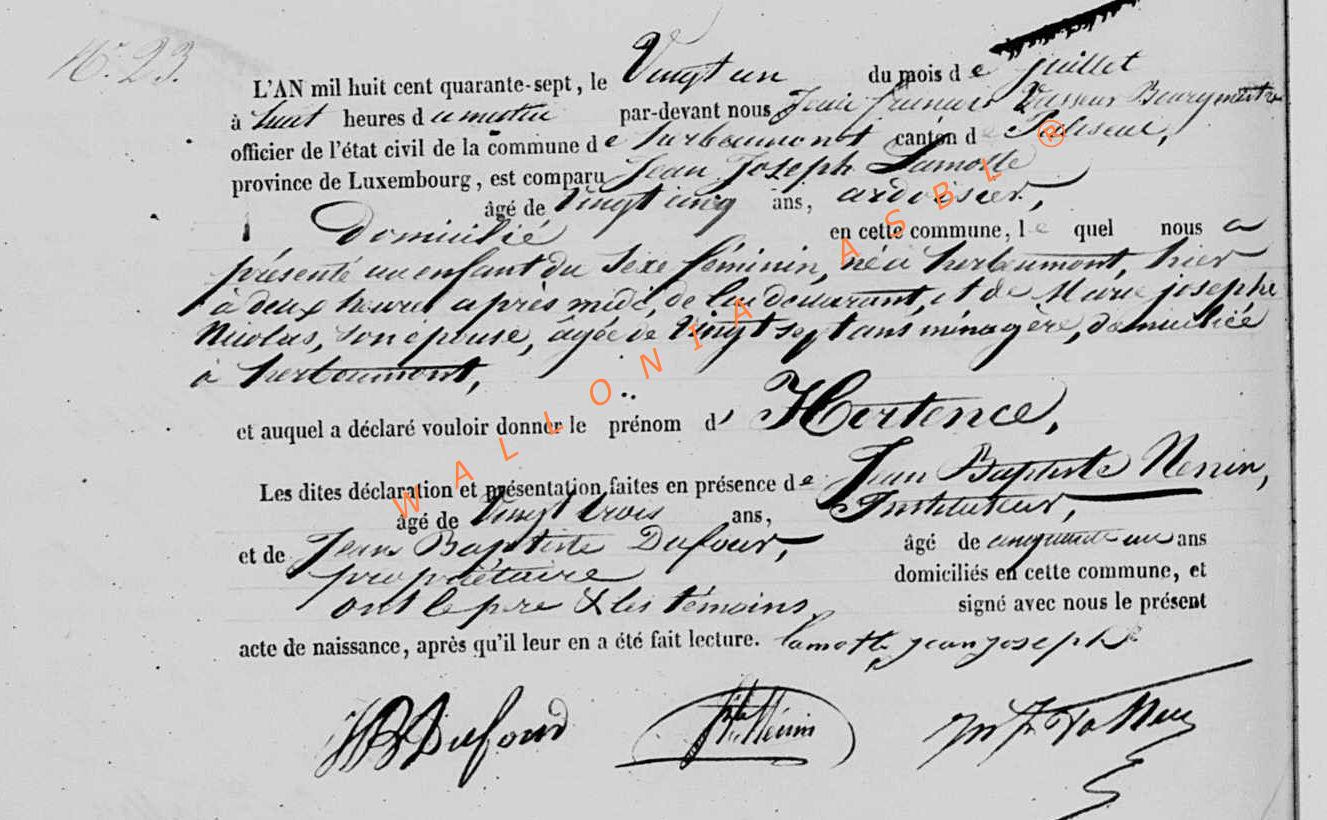 N.° 23.
L'AN mil huit cent quarante-sept, le Vingt un du mois de juillet
à huit heures du matin par-devant nous Jean Vasseur Bourgmestre
officier de l'état civil de la commune de herbeumont canton de Paliseul,
province de Luxembourg, est comparu Jean Joseph Lamotte
âgé de Vingt cinq ans, ardoisier,
Domicilié en cette commune, le quel nous a
présenté un enfant du Sexe féminin, né à herbeumont, hier
à deux heures après midi, de lui déclarant, et de Marie josephe
Nicolas, son épouse, âgée de Vingt sept ans ménagère, domiciliée
à herbeumont,
et auquel a déclaré vouloir donner le prénom d' Hortence,
Les dites déclaration et présentation faites en présence de Jean Baptiste Nenin,
âgé de Vingt trois ans, Instituteur,
et de Jean Baptiste Dufour, âgé de cinquante un ans
propriétaire domiciliés en cette commune, et
ont le père & les témoins, signé avec nous le présent
acte de naissance, après qu'il leur en a été fait lecture. lamotte jean joseph
JB Dufour
WALLONIA ASBL ®